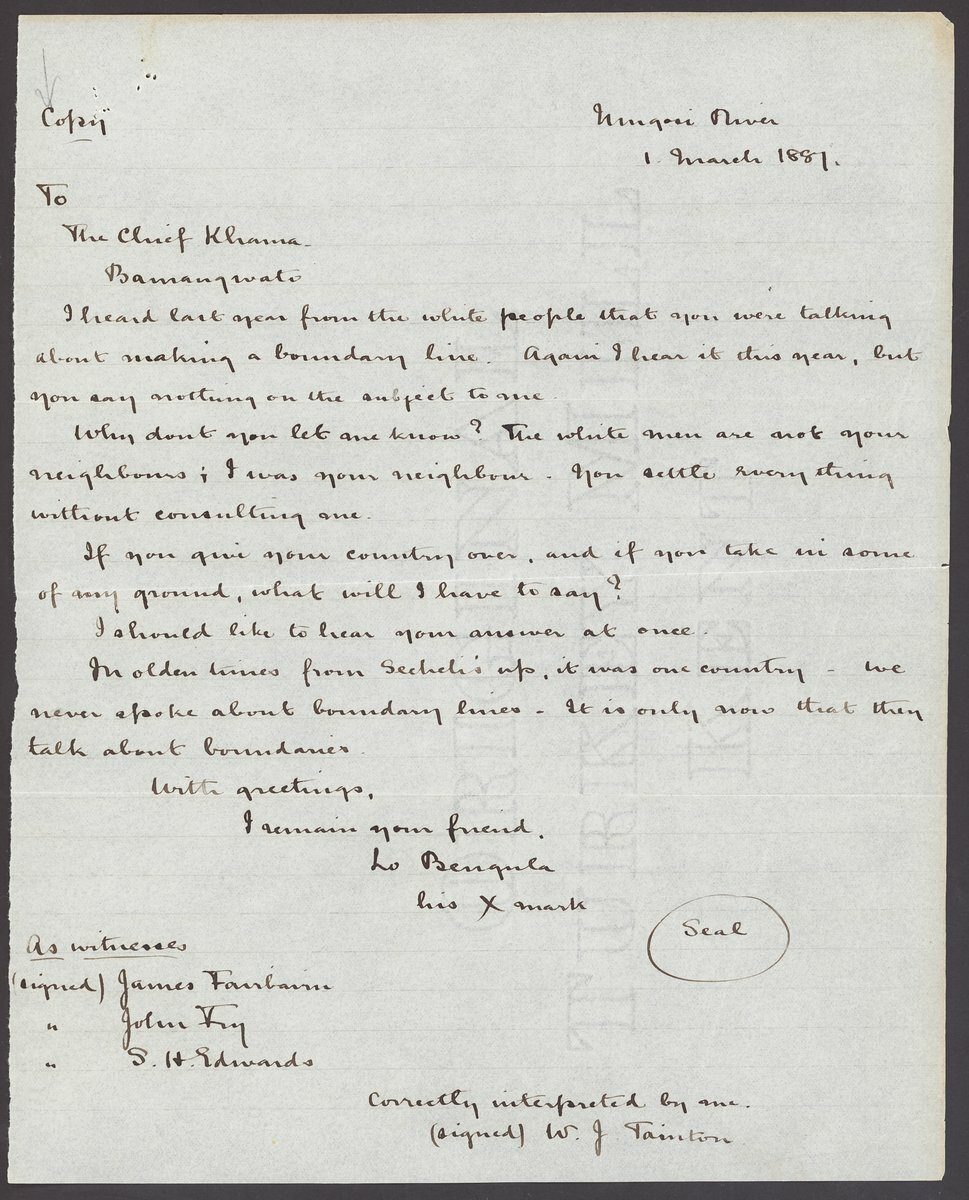 Copy
Umgosi River
1. March 1887.
To
The Chief Khama.
Bamangwato
I heard last year from the white people that you were talking
about making a boundary line. Again I hear it this year, but
you say nothing on the subject to me.
Why dont you let me know? The white men are not your
neighbours; I was your neighbour. You settle everything
without consulting me.
If you give your country over, and if you take in some
of my ground, what will I have to say?
I should like to hear your answer at once.
In olden times from Secheli's up, it was one country - we
never spoke about boundary lines - It is only now that they
talk about boundaries.
With greetings,
I remain your friend,
Lo Bengula
his X mark
Seal
As witnesses
(signed) James Fairbairn
" John Fry
" S. H. Edwards
Correctly interpreted by me.
(signed) W. J. Tainton